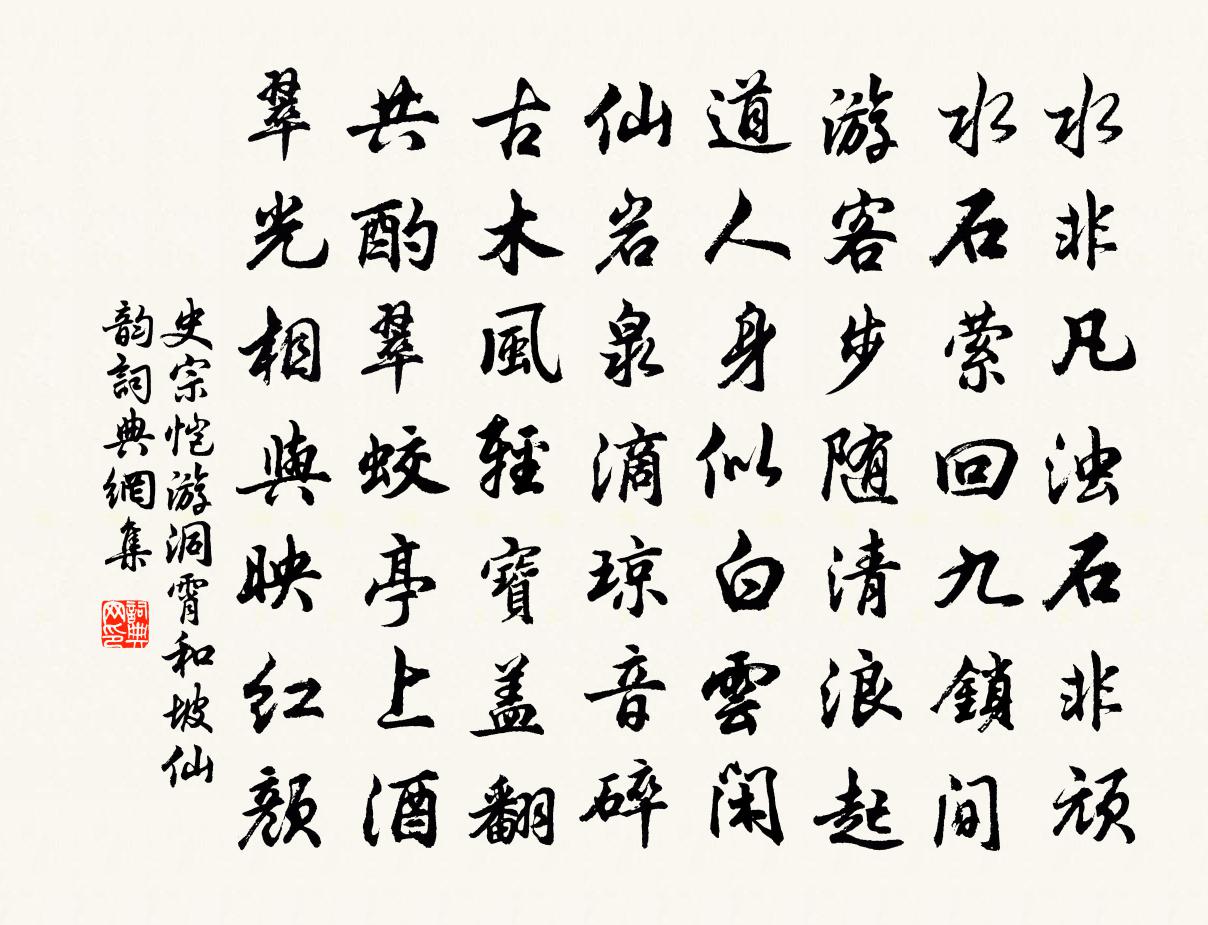 水非凡浊石非顽
水石萦回九鎖间
游客步随清浪起
道人身似白雲闲
仙岩泉滴琼音碎
古木風輕寶盖翻
共酌翠蛟亭上酒
翠光相與映红颜
史宗恺游洞霄和坡仙
韵詞典網集
詞典网印